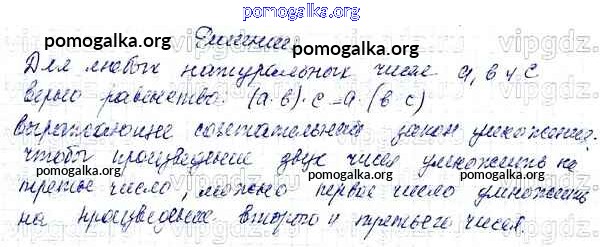 pomogalka.org
Решение:
pomogalka.org pomogalka.org
Для любых натуральных чисел a, b и c
верно равенство: (a·b)·c=a·(b·c)
pomogalka.org
выражающее сочетательный закон умножения:
чтобы произведение двух чисел умножить на
pomogalka.org pomogalka.org
третье число, можно первое число умножить
на произведение второго и третьего чисел.